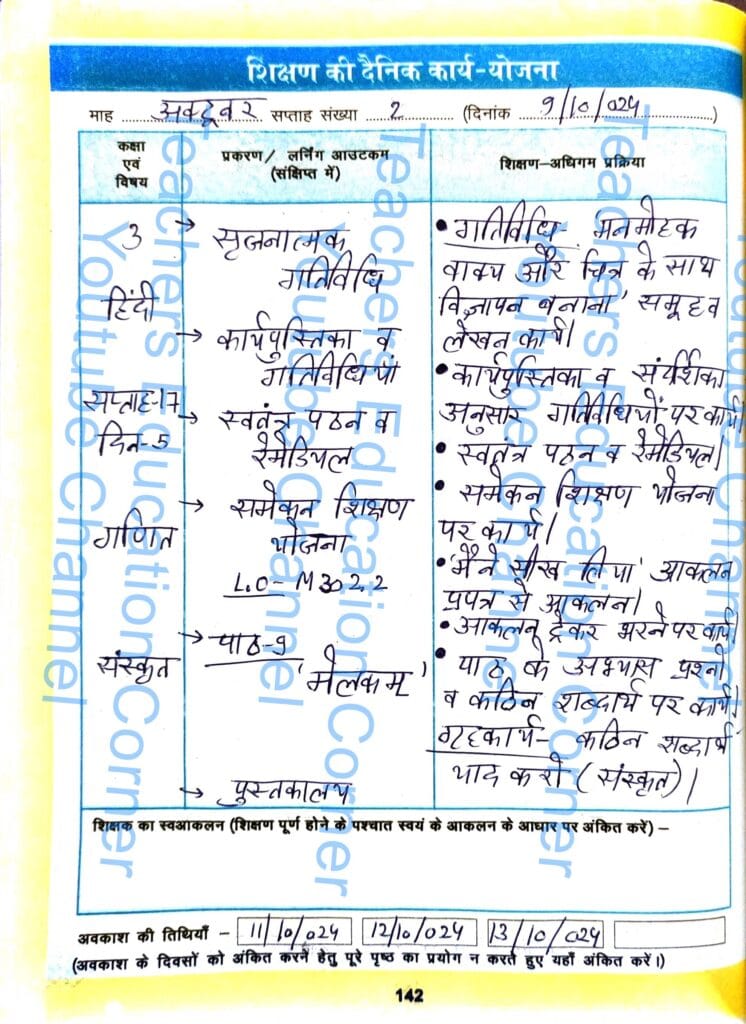 शिक्षण की दैनिक कार्य-योजना
माह अक्टूबर सप्ताह संख्या 2 (दिनांक 9/10/024)
कक्षा एवं विषय
प्रकरण/ लर्निंग आउटकम (संक्षिप्त में)
शिक्षण-अधिगम प्रक्रिया
3
हिंदी
सप्ताह-17
दिन-5
गणित
संस्कृत
→ सृजनात्मक
गतिविधि
→ कार्यपुस्तिका व
गतिविधियां
→ स्वतंत्र पठन व
रेमेडियल
→ समेकन शिक्षण
योजना
L.O- M302.2
→ पाठ-9
'मेलकम्'
→ पुस्तकालय
• गतिविधि- मनमोहक
वाक्य और चित्र के साथ
विज्ञापन बनाना' समूह व
लेखन कार्य।
• कार्यपुस्तिका व संदर्शिका
अनुसार गतिविधियों पर कार्य।
• स्वतंत्र पठन व रेमेडियल।
• समेकन शिक्षण योजना
पर कार्य।
• 'मैंने सीख लिया' आकलन
प्रपत्र से आकलन।
• आकलन ट्रेकर भरने पर कार्य।
• पाठ के अभ्यास प्रश्नों
व कठिन शब्दार्थ पर कार्य।
गृहकार्य- कठिन शब्दार्थ
याद करो (संस्कृत)।
शिक्षक का स्वआकलन (शिक्षण पूर्ण होने के पश्चात स्वयं के आकलन के आधार पर अंकित करें) –
अवकाश की तिथियाँ - 11/10/024 12/10/024 13/10/024
(अवकाश के दिवसों को अंकित करने हेतु पूरे पृष्ठ का प्रयोग न करते हुए यहाँ अंकित करें।)
142
Teachers Education Corner
Youtube Channel
Teachers Education Corner
Youtube Channel
Teachers Education Corner
Youtube Channel